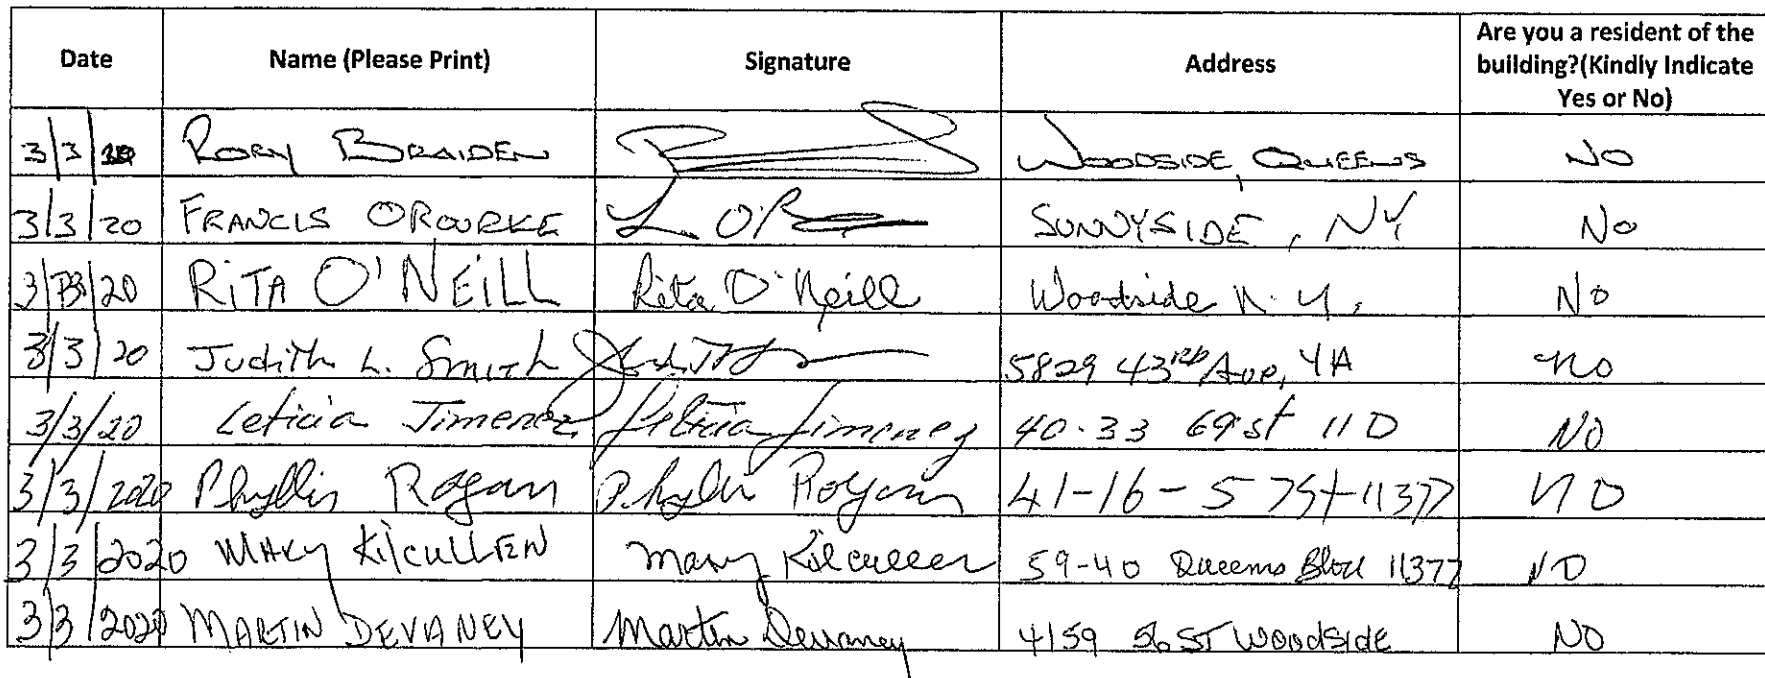 Date Name (Please Print) Signature Address Are you a resident of the building?(Kindly Indicate Yes or No)
3/3/20 RORY BRAIDEN WOODSIDE, QUEENS NO
3/3/20 FRANCIS OROURKE SUNNYSIDE, NY, No
3/3/20 RiTA O'NEiLL Rita O'Neill Woodside N.Y. No
3/3/20 Judith L. Smith 5829 43rd Ave, 4A no
3/3/20 Leticia Jimenez Leticia Jimenez 40-33 69 st 11D NO
3/3/2020 Phyllis Rogan Phyllis Rogan 41-16-57St-11377 NO
3/3/2020 MARY KilcullEN Mary Kilcullen 59-40 Queens Blvd 11377 NO
3/3/2020 MARTIN DEVANEY Martin Devaney 4159 56 ST WoodSide NO